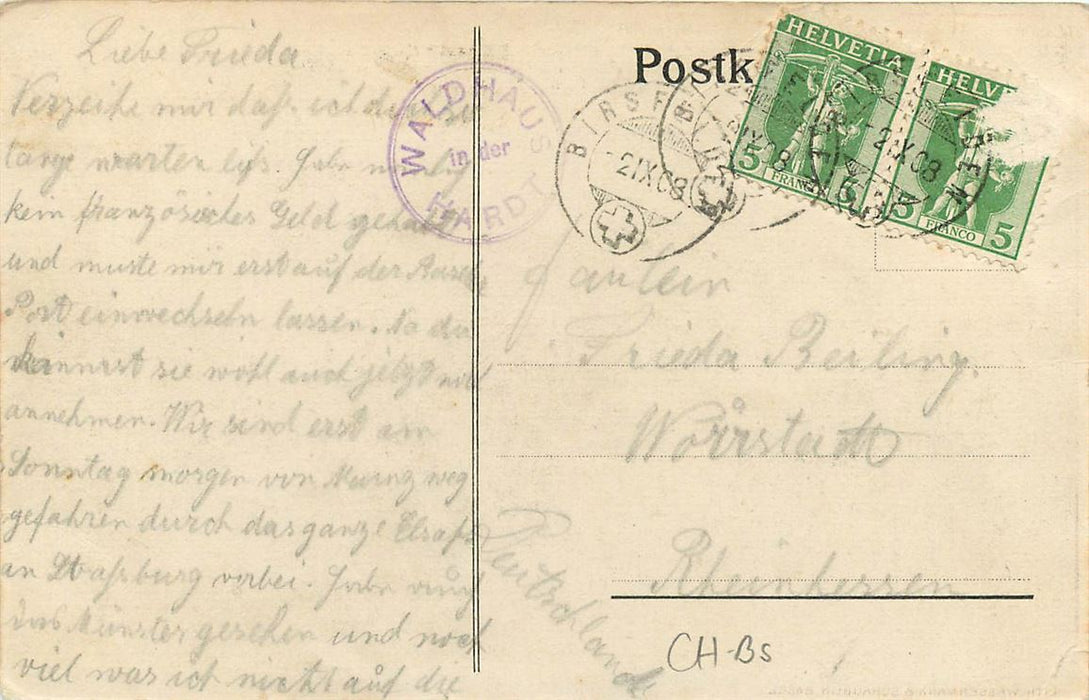 Liebe Frieda
Verzeihe mir daß ich dich so
lange warten ließ. Habe
kein französisches Geld gehabt
und muste mir erst auf der
Post einwechseln lassen. Na du
kannst sie wohl auch jetzt
annehmen. Wir sind erst am
Sonntag morgen von Mainz weg
gefahren durch das ganze Elsaß
an Straßburg vorbei. Habe
das Münster gesehen und noch
viel was ich nicht auf die
WALDHAUS
in der
HARDT
Postk
HELVETIA
5 FRANCO 5
HELV
5 FRANCO 5
BIRSF
-2IX08
-2IX08
Fräulein
Frieda Beiling.
Wörrstadt
Rheinhessen
Deutschland
CH-BS